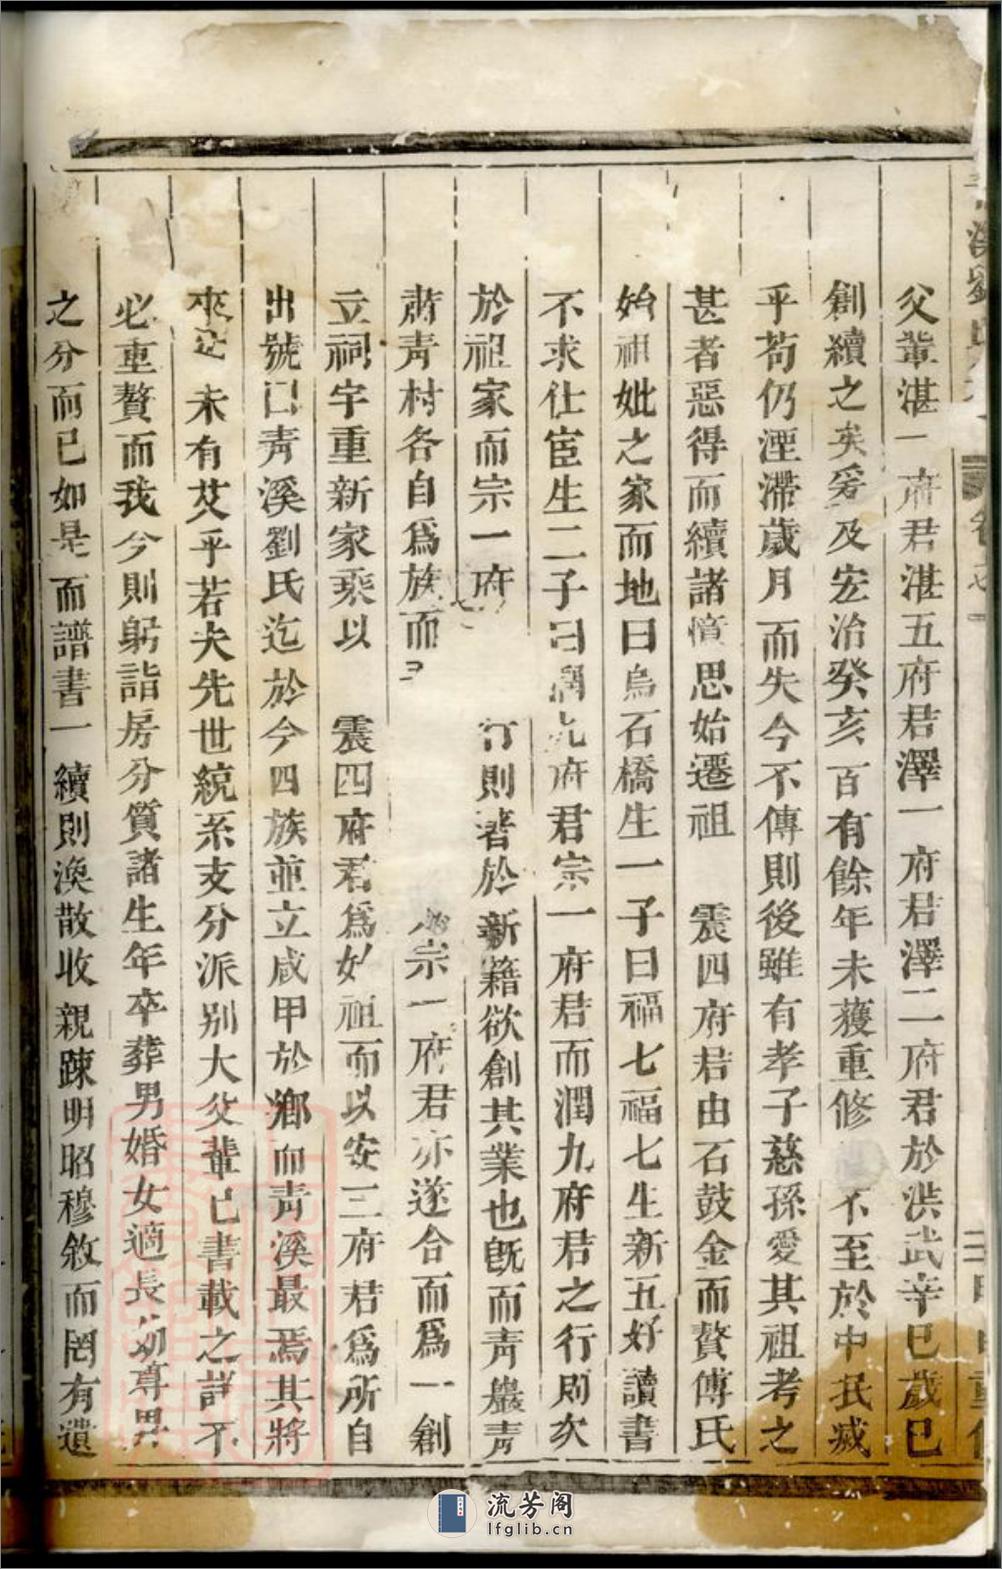 父輩湛一府君湛五府君澤一府君澤二府君於洪武辛巳歲已
創續之矣爰及宏治癸亥百有餘年未獲重修不至於中泯滅
乎苟仍湮滯歲月而失今不傳則後雖有孝子慈孫愛其祖考之
甚者惡得而續諸憤思始遷祖 震四府君由石鼓金而贅傅氏
始祖妣之家而地曰烏石橋生一子曰福七福七生新五好讀書
不求仕宦生二子曰潤九府君宗一府君而潤九府君之行則次
於祖家而宗一府 行則著於新籍欲創其業也旣而靑巖靑
肅靑村各自爲族而 宗一府君亦遂合而爲一創
立祠宇重新家乘以 震四府君爲始祖而以安三府君爲所自
出號曰靑溪劉氏迄於今四族並立咸甲於鄉而靑溪最焉其將
來 未有艾乎若夫先世統系支分派别大父輩已書載之詳不
必重贅而我今則躬詣房分質諸生年卒葬男婚女適長幼尊卑
之分而已如是而譜書一續則渙散收親踈明昭穆敘而罔有遺
流芳阁
lfglib.cn